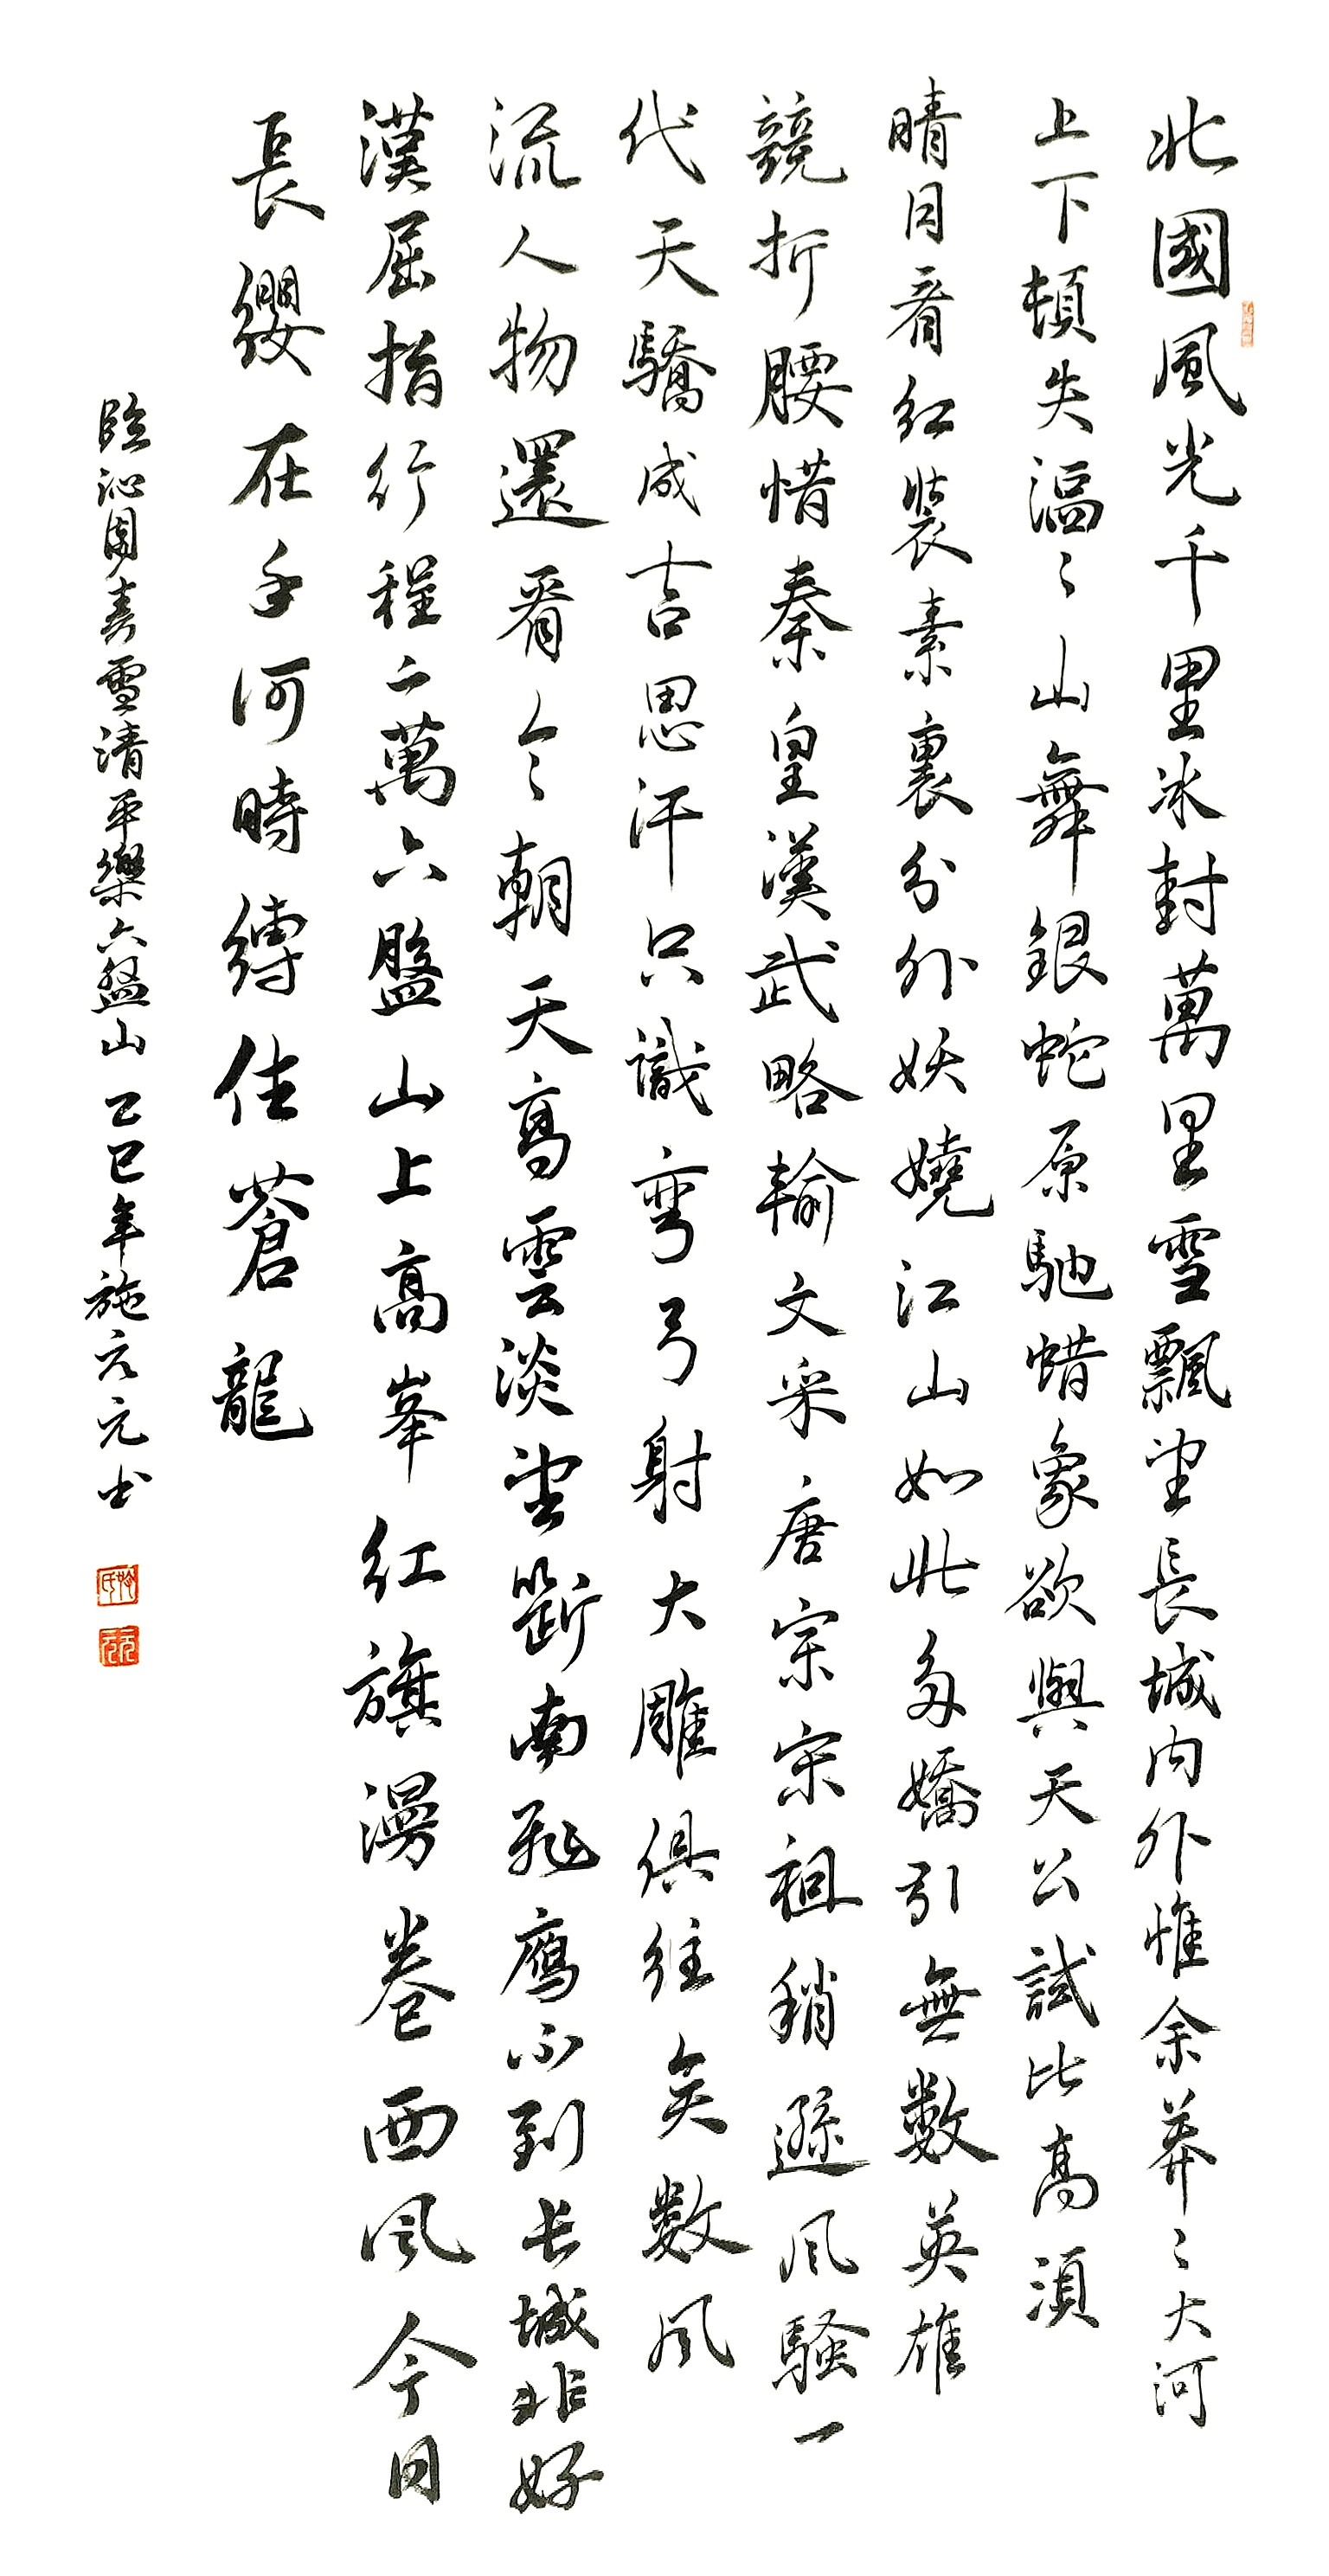 北國風光千里冰封萬里雪飄望長城内外惟余莽〻大河
上下頓失滔〻山舞銀蛇原馳蜡象欲與天公試比高須
晴日看紅裝素裹分外妖嬈江山如此多嬌引無數英雄
競折腰惜秦皇漢武略輸文采唐宗宋祖稍遜風騷一
代天驕成吉思汗只識彎弓射大雕俱往矣數風
流人物還看今朝天高雲淡望斷南飛鴈不到长城非好
漢屈指行程二萬六盤山上高峯紅旗漫卷西風今日
長纓在手何時縛住蒼龍
臨沁園春雪清平樂六盤山 乙巳年施元元书
施氏
元元